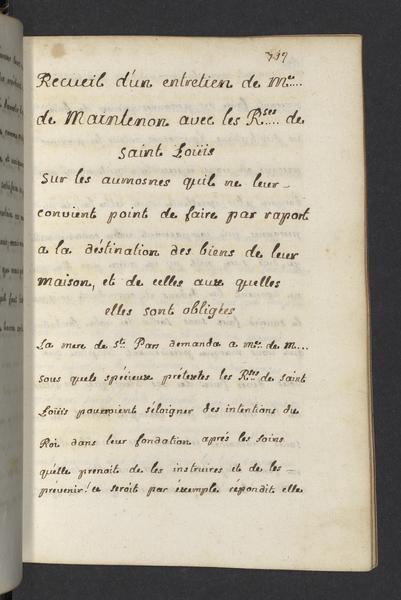 719
Recueil d'un entretien de Me....
de Maintenon avec les Rses.... de
Saint Loüis
Sur les aumosnes quil ne leur
convient point de faire par raport
a la déstination des biens de leur
maison, et de celles aux quelles
elles sont obligées
La mere de St. Pars demanda a me. de M....
sous quels spécieux prétextes les Rses de saint
Loüis pouroient séloigner des intentions du
Roi dans leur fondation aprés les soins
qu'elle prenoit de les instruires et de les
prévenir! ce seroit par éxemple répondit elle